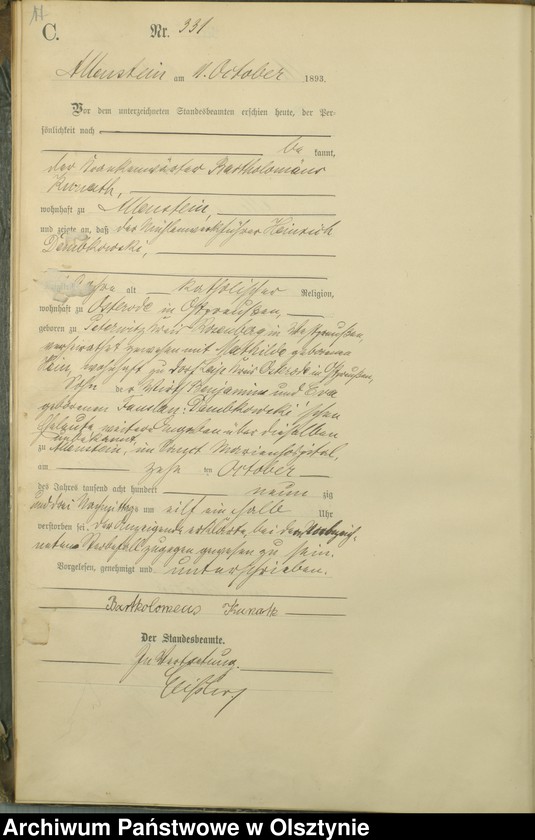 11
C. Nr. 331
Allenstein am 11. October 1893.
Vor dem unterzeichneten Standesbeamten erschien heute, der Per-
sönlichkeit nach
be kannt,
der Krankenwärter Bartholomäus
Kunath,
wohnhaft zu Allenstein,
und zeigte an, daß der Mühlenwerkführer Heinrich
Dembkowski,
Jahre alt katholischer Religion,
wohnhaft zu Osterode in Ostpreußen,
geboren zu Kreis Rosenberg in Westpreußen,
verheirathet gewesen mit Mathilde geborenen
wohnhaft zu Kreis Osterode in Ostpreußen,
Sohn der Wirth Benjamin und Eva
geborenen Dembkowski'schen
Eheleute, weitere Angaben über dieselben
unbekannt,
zu Allenstein, im Sanct Marienhospital,
am zehn ten October
des Jahres tausend acht hundert neun zig
und drei Vormittags um eilf ein halb Uhr
verstorben sei. Der Anzeigende erklärte, bei dem
Sterbefall zugegen gewesen zu sein.
Vorgelesen, genehmigt und unterschrieben.
Bartholomeus Kunath
Der Standesbeamte.
In Vertretung.
Archiwum Państwowe w Olsztynie